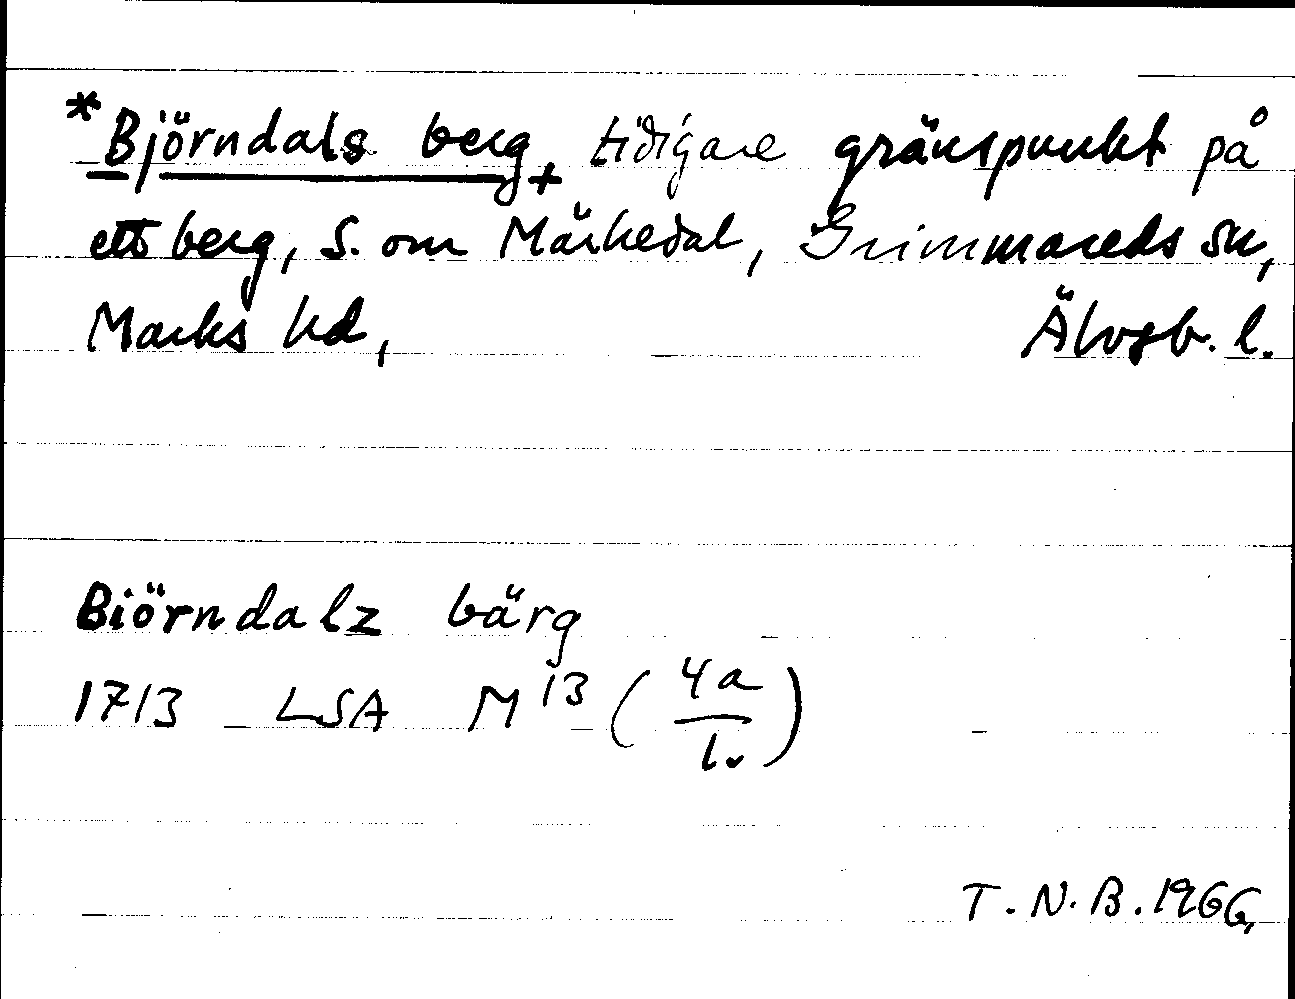 *Björndals berg, tidigare gränspunkt på
ett berg, S. om Märkedal, Grimmareds sn,
Marks hd, Älvsb. l.
Biörndalz bärg
1713 LSA M 13 (4a/1.)
T.N.B. 1966.